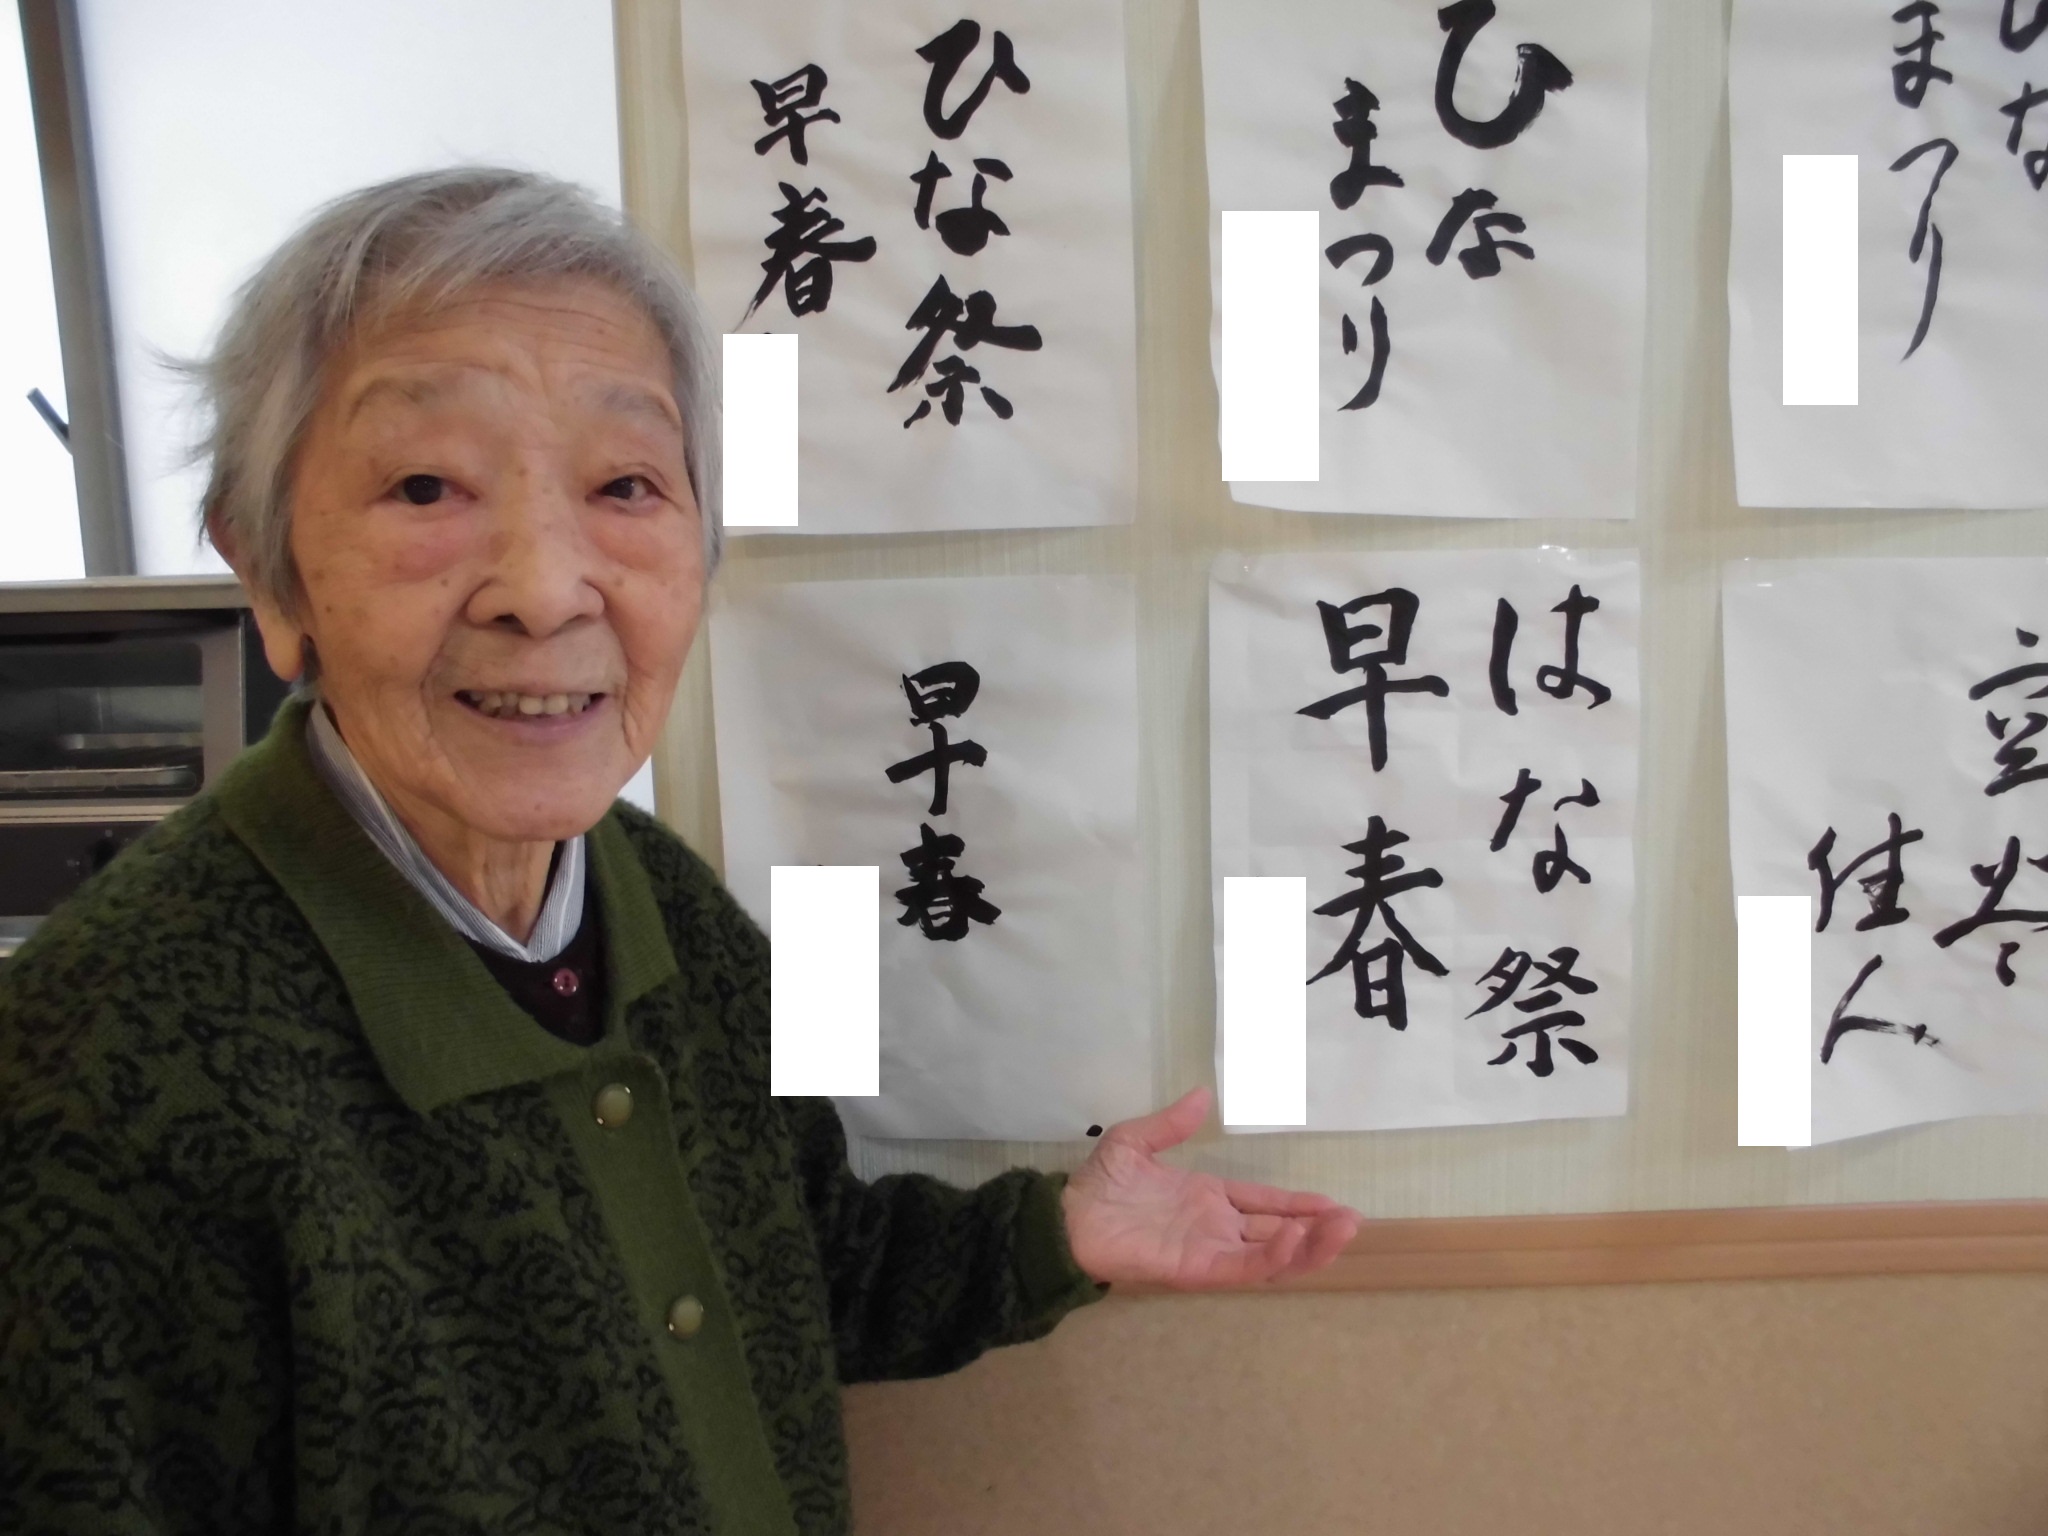 ひな祭
早春
ひな
まつり
ひな
まつり
早春
はな祭
早春
佳人